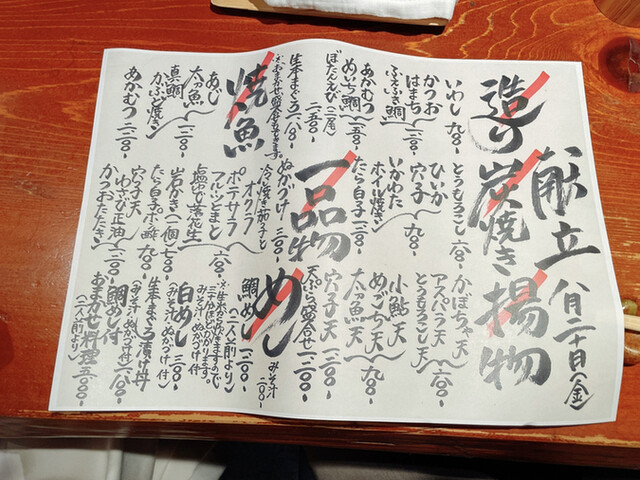 献立 八月二十日(金)
造り
いわし 九〇〇-
かつお
はまち
ふえふき鯛 一二〇〇-
あかむつ
めいち鯛 一五〇〇-
ぼたんえび(二尾)
二五〇〇-
生本まぐろ 一八〇〇-
焼魚
あじ
太刀魚 一二〇〇-
真鯛
かぶと焼き
あかむつ 一二〇〇-
炭焼き
とうもろこし 六〇〇-
ひいか
穴子 九〇〇-
いかわた
ホイル焼き
たら白子 一二〇〇-
一品物
ぬかづけ 三〇〇-
冷し焼き茄子と
オクラ
ポテサラ
フルーツとまと
塩ゆで落花生 六〇〇-
岩かき(一個) 七〇〇-
たら白子ポン酢 九〇〇-
穴子天
わさび正油
かつおたたき 一二〇〇-
揚物
かぼちゃ天
アスパラ天
とうもろこし天 六〇〇-
小鮎天
めごち天
太刀魚天 九〇〇-
穴子天 一二〇〇-
天ぷら盛合せ 一二〇〇-
めし
みそ汁 二〇〇-
鯛めし 一二〇〇-
(二人前より)
みそ汁ぬかづけ付
白めし 三〇〇-
(みそ汁、ぬかづけ付)
生本まぐろ漬け丼
(みそ汁ぬかづけ付) 一八〇〇-
鯛めし付
おまかせ料理 五〇〇〇-
(二人前より)